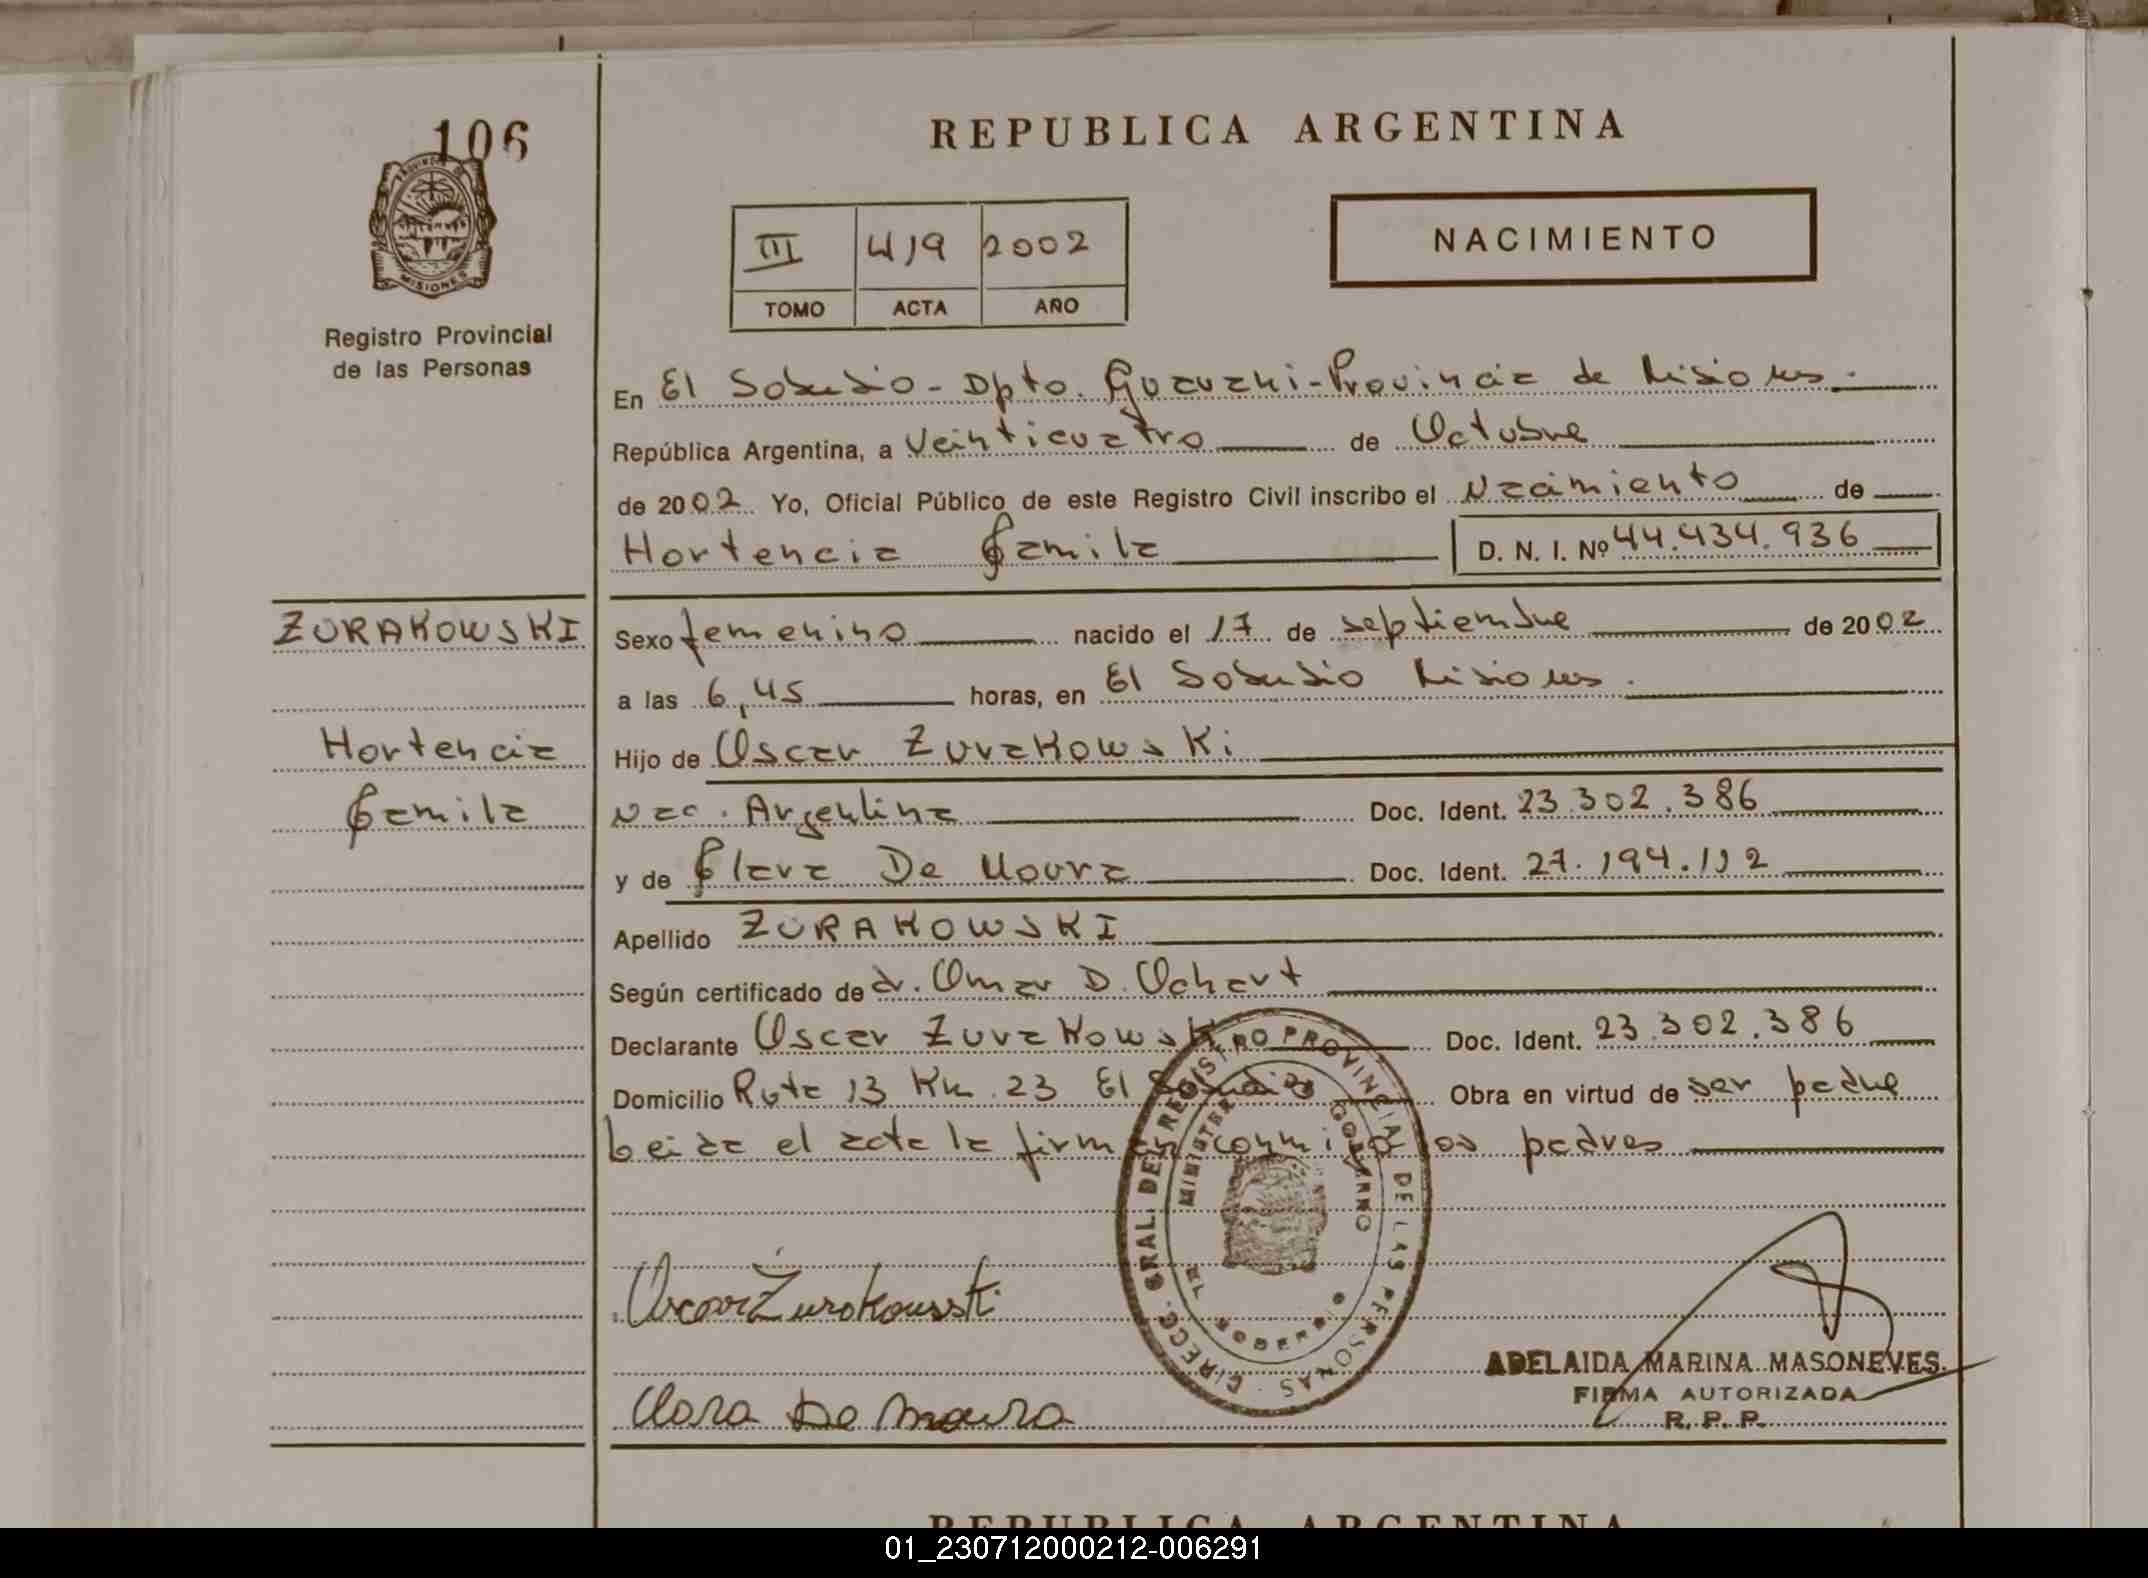 106
REPUBLICA ARGENTINA
PROVINCIA DE
MISIONES
Registro Provincial
de las Personas
III 419 2002
TOMO ACTA AÑO
NACIMIENTO
En El Soberbio - Dpto. Guarani - Provincia de Misiones.
República Argentina, a Veinticuatro de Octubre
de 2002 Yo, Oficial Público de este Registro Civil inscribo el Nacimiento de
Hortencia Camila D. N. I. Nº 44.434.936
ZURAKOWSKI
Hortencia
Camila
Sexo femenino nacido el 17 de septiembre de 2002
a las 6,45 horas, en El Soberbio Misiones.
Hijo de Oscar Zurakowski
Nac. Argentina Doc. Ident. 23.302.386
y de Clara De Moura Doc. Ident. 27.194.112
Apellido ZURAKOWSKI
Según certificado de dr. Omar D. Ochart
Declarante Oscar Zurakowski Doc. Ident. 23.302.386
Domicilio Ruta 13 Km. 23 El Soberbio Obra en virtud de ser padre
Leida el acta la firman conmigo los padres
DIRECC. GRAL. DEL REGISTRO PROVINCIAL DE LAS PERSONAS
MINISTERIO GOBIERNO
EL SOBERBIO
Oscar Zurakowski
Clara De Moura
ADELAIDA MARINA MASONEVES
FIRMA AUTORIZADA
R. P. P.
REPUBLICA ARGENTINA
01_230712000212-006291